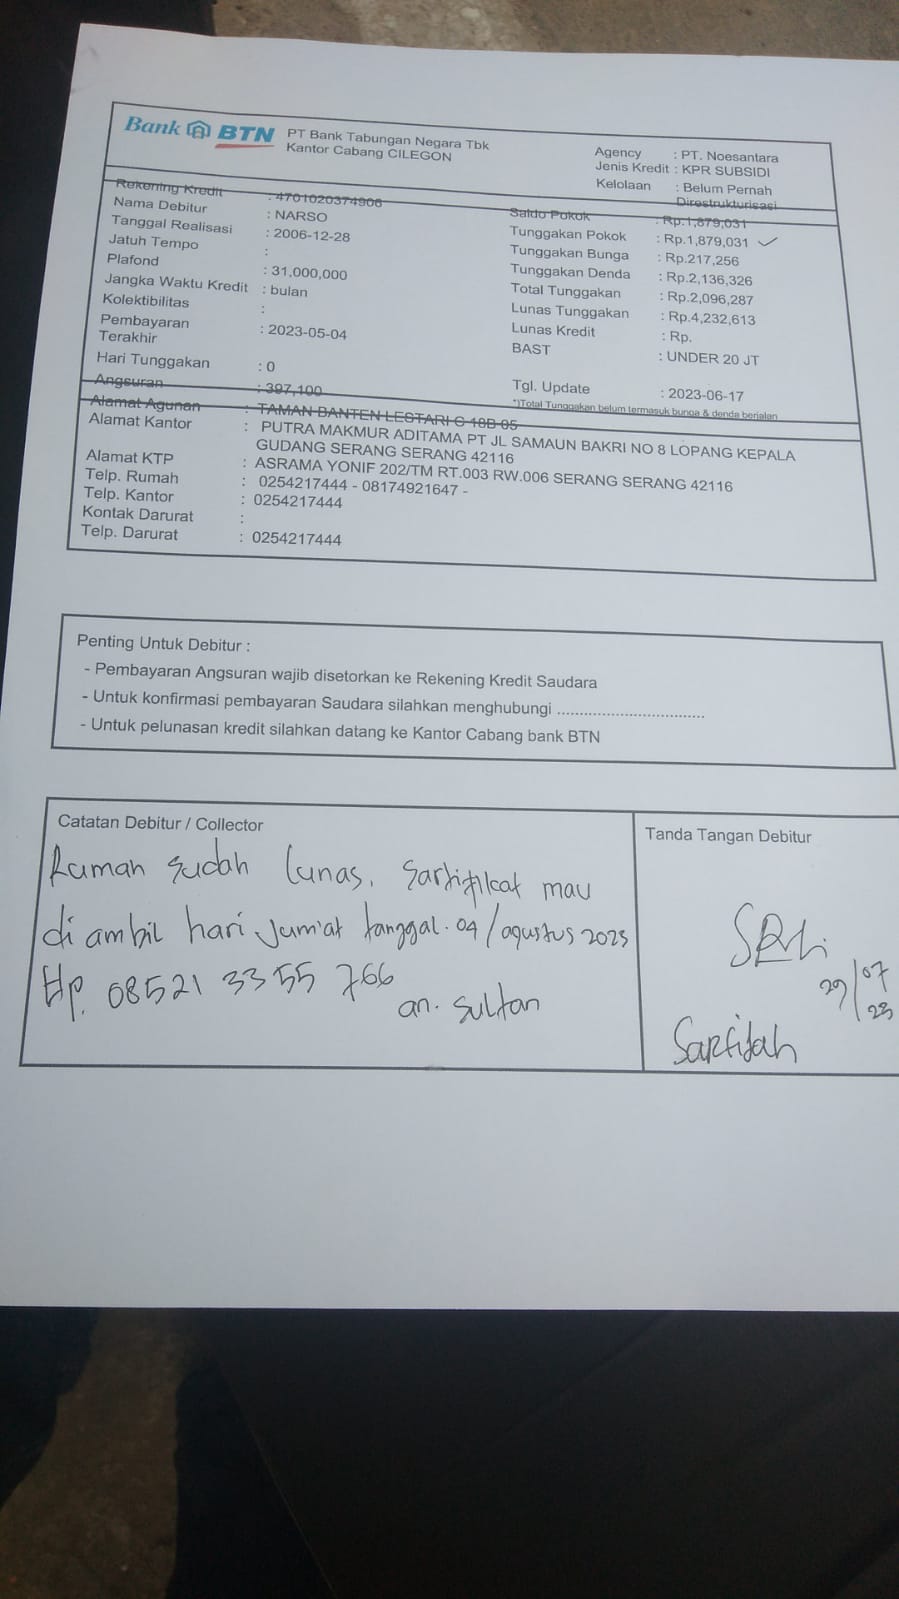 Bank BTN PT Bank Tabungan Negara Tbk
Kantor Cabang CILEGON
Agency : PT. Noesantara
Jenis Kredit : KPR SUBSIDI
Kelolaan : Belum Pernah
Direstrukturisasi
Rekening Kredit : 4701020374906
Nama Debitur : NARSO
Tanggal Realisasi : 2006-12-28
Jatuh Tempo :
Plafond : 31,000,000
Jangka Waktu Kredit : bulan
Kolektibilitas :
Pembayaran
Terakhir : 2023-05-04
Hari Tunggakan : 0
Angsuran : 397,100
Saldo Pokok : Rp.1,879,031
Tunggakan Pokok : Rp.1,879,031 ✓
Tunggakan Bunga : Rp.217,256
Tunggakan Denda : Rp.2,136,326
Total Tunggakan : Rp.2,096,287
Lunas Tunggakan : Rp.4,232,613
Lunas Kredit : Rp.
BAST : UNDER 20 JT
Tgl. Update : 2023-06-17
*)Total Tunggakan belum termasuk bunga & denda berjalan
Alamat Agunan : TAMAN BANTEN LESTARI C 18B 05
Alamat Kantor : PUTRA MAKMUR ADITAMA PT JL SAMAUN BAKRI NO 8 LOPANG KEPALA
GUDANG SERANG SERANG 42116
Alamat KTP : ASRAMA YONIF 202/TM RT.003 RW.006 SERANG SERANG 42116
Telp. Rumah : 0254217444 - 08174921647 -
Telp. Kantor : 0254217444
Kontak Darurat :
Telp. Darurat : 0254217444
Penting Untuk Debitur :
- Pembayaran Angsuran wajib disetorkan ke Rekening Kredit Saudara
- Untuk konfirmasi pembayaran Saudara silahkan menghubungi .................................
- Untuk pelunasan kredit silahkan datang ke Kantor Cabang bank BTN
Catatan Debitur / Collector
Rumah sudah lunas, sartifikat mau
di ambil hari Jum'at tanggal. 04/agustus 2023
Hp. 08521 3355 766
an. sultan
Tanda Tangan Debitur
29/07
23
Sarfidah